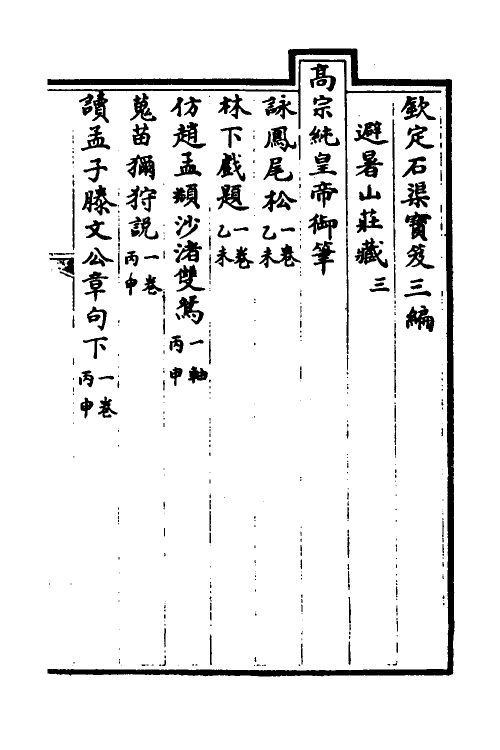 欽定石渠寶笈三編
避暑山莊藏三
高宗純皇帝御筆
詠鳳尾松一卷乙未
林下戲題一卷乙未
仿趙孟頫沙渚雙鴛一軸丙申
蒐苗獮狩説一卷丙申
讀孟子滕文公章句下一卷丙申